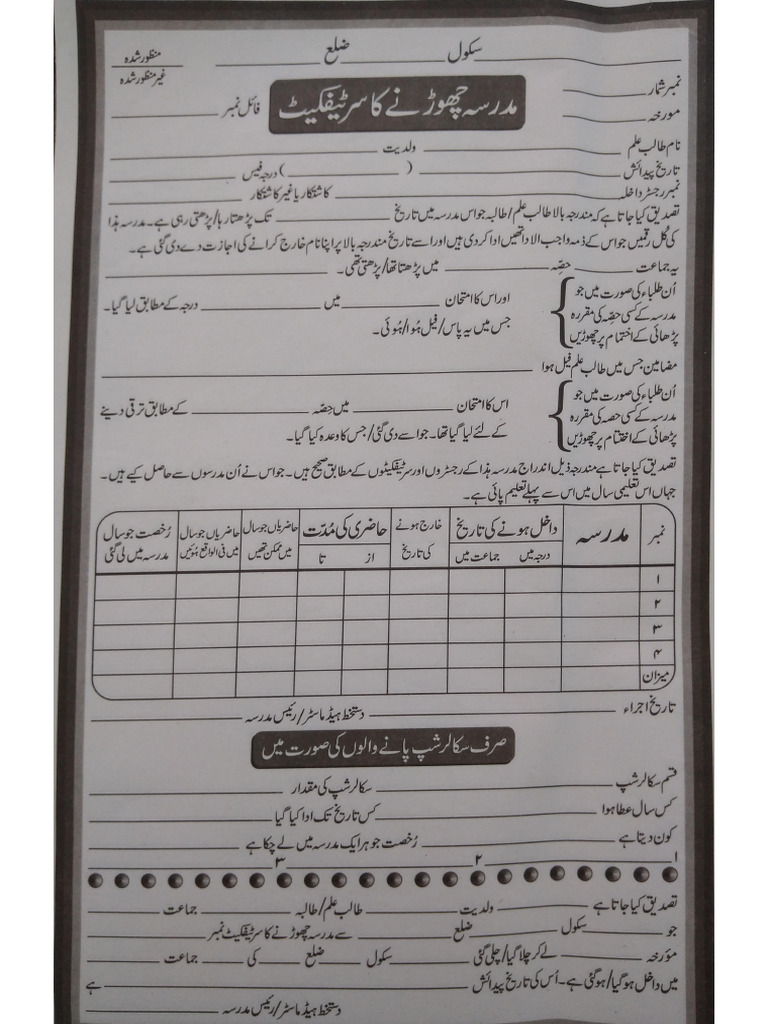 سکول ____________ ضلع ____________ منظور شدہ
غیر منظور شدہ
نمبر شمار ____________
مدرسہ چھوڑنے کا سرٹیفکیٹ
مورخہ ____________ فائل نمبر ____________
نام طالب علم ____________ ولدیت ____________
تاریخ پیدائش ____________ ( ____________ ) درجہ فیس ____________
نمبر رجسٹر داخلہ ____________ کاشتکار یا غیر کاشتکار ____________
تصدیق کیا جاتا ہے کہ مندرجہ بالا طالب علم/طالبہ جو اس مدرسہ میں تاریخ ____________ تک پڑھتا رہا/پڑھتی رہی ہے۔ مدرسہ ہذا
کی کُل رقمیں جو اس کے ذمہ واجب الادا تھیں ادا کر دی ہیں اور اسے تاریخ مندرجہ بالا پر اپنا نام خارج کرانے کی اجازت دے دی گئی ہے۔
یہ جماعت ____________ حِصّہ ____________ میں پڑھتا تھا/پڑھتی تھی۔
اُن طلباء کی صورت میں جو
مدرسہ کے کسی حِصّہ کی مقررہ
پڑھائی کے اختتام پر چھوڑیں
اور اس کا امتحان ____________ میں ____________ درجہ کے مطابق لیا گیا۔
جس میں یہ پاس/فیل ہُوا/ہُوئی۔
مضامین جس میں طالب علم فیل ہوا ____________
اُن طلباء کی صورت میں جو
مدرسہ کے کسی حصہ کی مقررہ
پڑھائی کے اختتام پر چھوڑیں
اس کا امتحان ____________ میں حِصّہ ____________ کے مطابق ترقی دینے
کے لئے لیا گیا تھا۔ جو اسے دی گئی/جس کا وعدہ کیا گیا۔
تصدیق کیا جاتا ہے مندرجہ ذیل اندراج مدرسہ ہذا کے رجسٹروں اور سرٹیفکیٹوں کے مطابق صحیح ہیں۔ جو اس نے اُن مدرسوں سے حاصل کیے ہیں۔
جہاں اس تعلیمی سال میں اس سے پہلے تعلیم پائی ہے۔
نمبر
مدرسہ
داخل ہونے کی تاریخ
درجہ میں جماعت میں
خارج ہونے
کی تاریخ
حاضری کی مُدّت
از تا
حاضریاں جو سال
میں ممکن تھیں
حاضریاں جو سال
میں فی الواقع ہوئیں
رُخصت جو سال
مدرسہ میں لی گئی
۱
۲
۳
۴
میزان
تاریخ اجراء ____________ دستخط ہیڈ ماسٹر/رئیس مدرسہ ____________
صرف سکالرشپ پانے والوں کی صورت میں
قسم سکالرشپ ____________ سکالرشپ کی مقدار ____________
کس سال عطا ہوا ____________ کس تاریخ تک ادا کیا گیا ____________
کون دیتا ہے ____________ رُخصت جو ہر ایک مدرسہ میں لے چکا ہے ____________
۱ ____________ ۲ ____________ ۳ ____________
تصدیق کیا جاتا ہے ____________ ولدیت ____________ طالب علم/طالبہ ____________ جماعت ____________
جو ____________ سکول ____________ ضلع ____________ سے مدرسہ چھوڑنے کا سرٹیفکیٹ نمبر ____________
مؤرخہ ____________ لے کر چلا گیا/چلی گئی ____________ سکول ____________ ضلع ____________ کی ____________ جماعت ____________
میں داخل ہو گیا/ہو گئی ہے۔ اُس کی تاریخ پیدائش ____________ ہے
دستخط ہیڈ ماسٹر/رئیس مدرسہ ____________